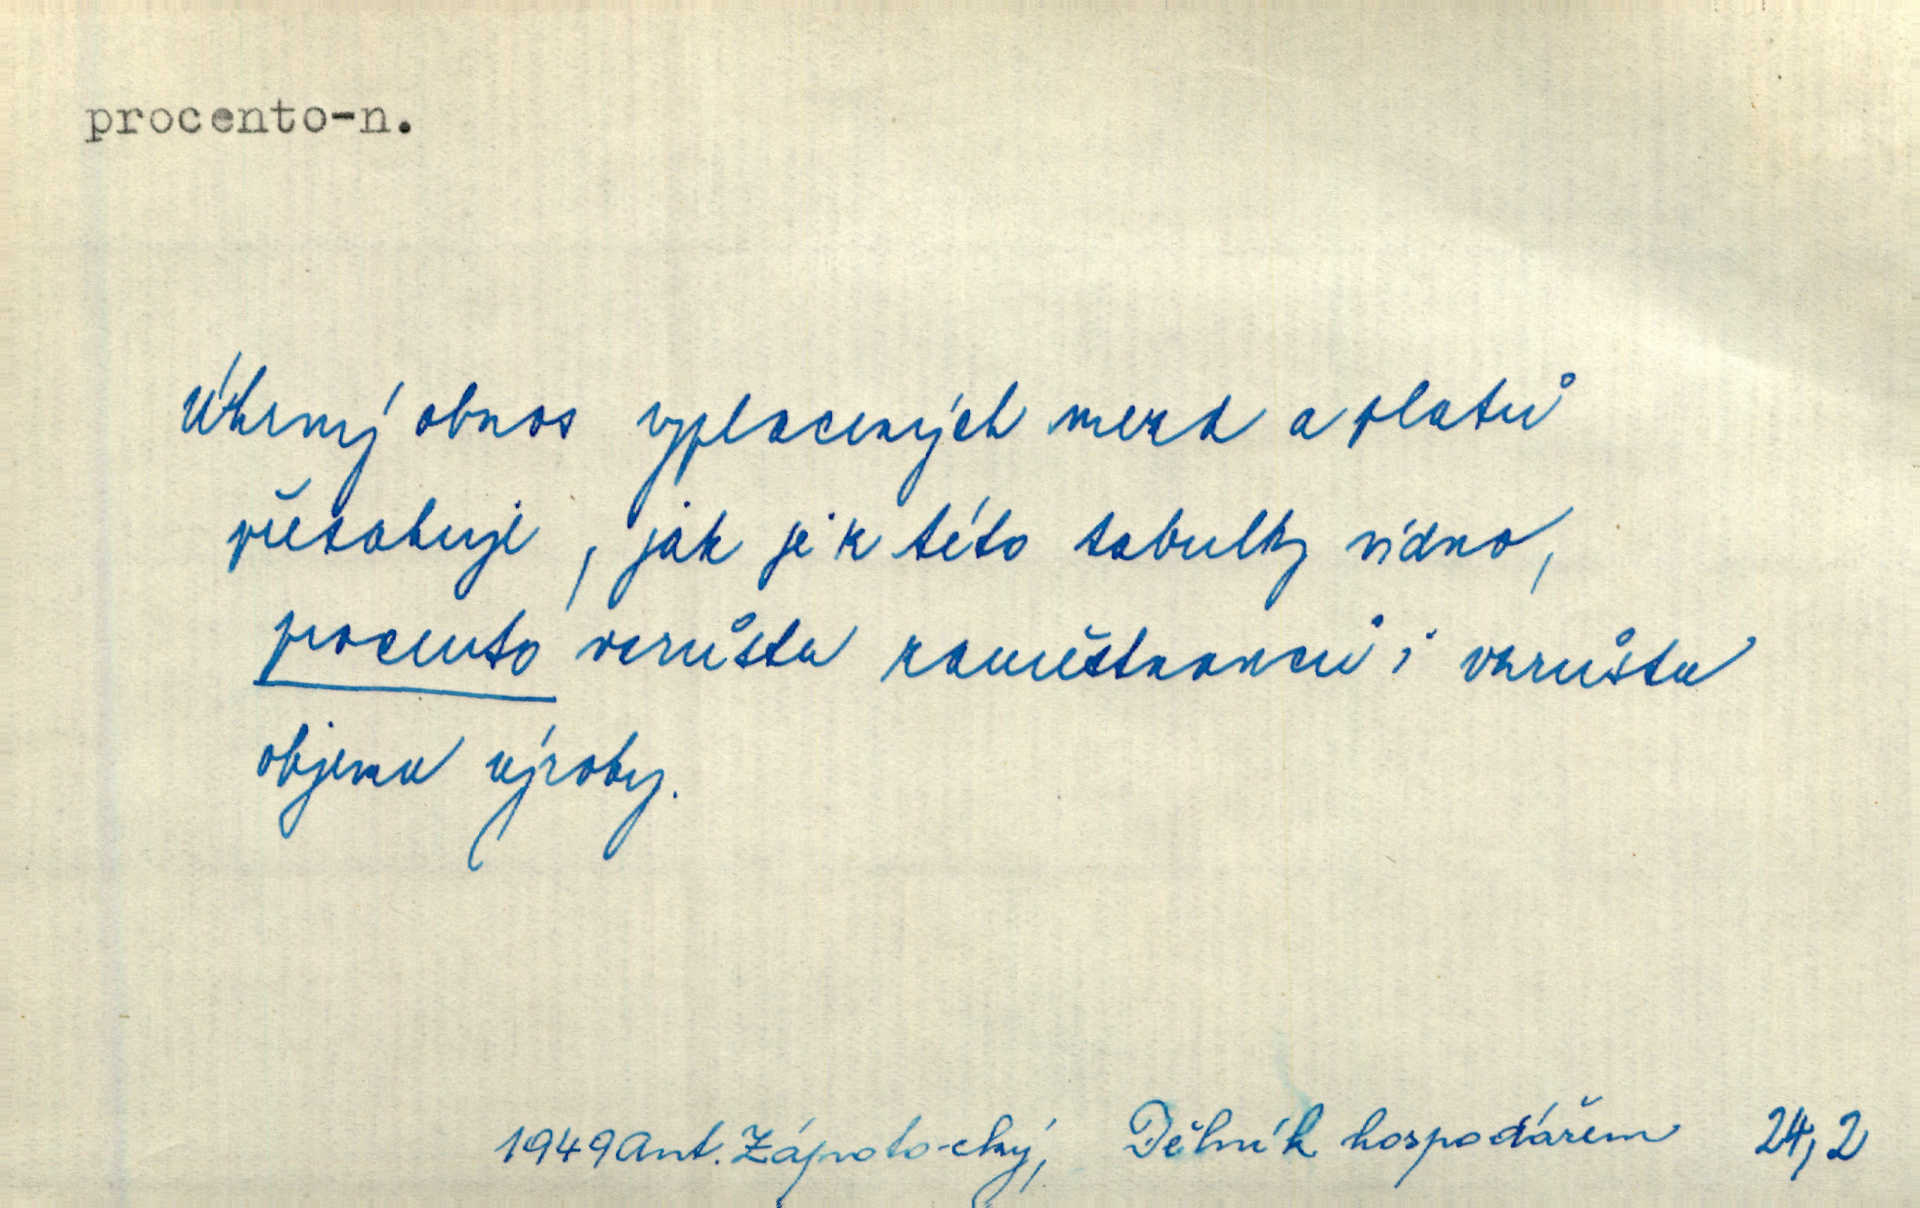 procento-n.
Úhrnný obnos vyplacených mezd a platů
přesahuje, jak je z této tabulky vidno,
procento vzrůstu zaměstnanců i vzrůstu
objemu výroby.
1949 Ant. Zápotocký, Dělník hospodářem 24,2